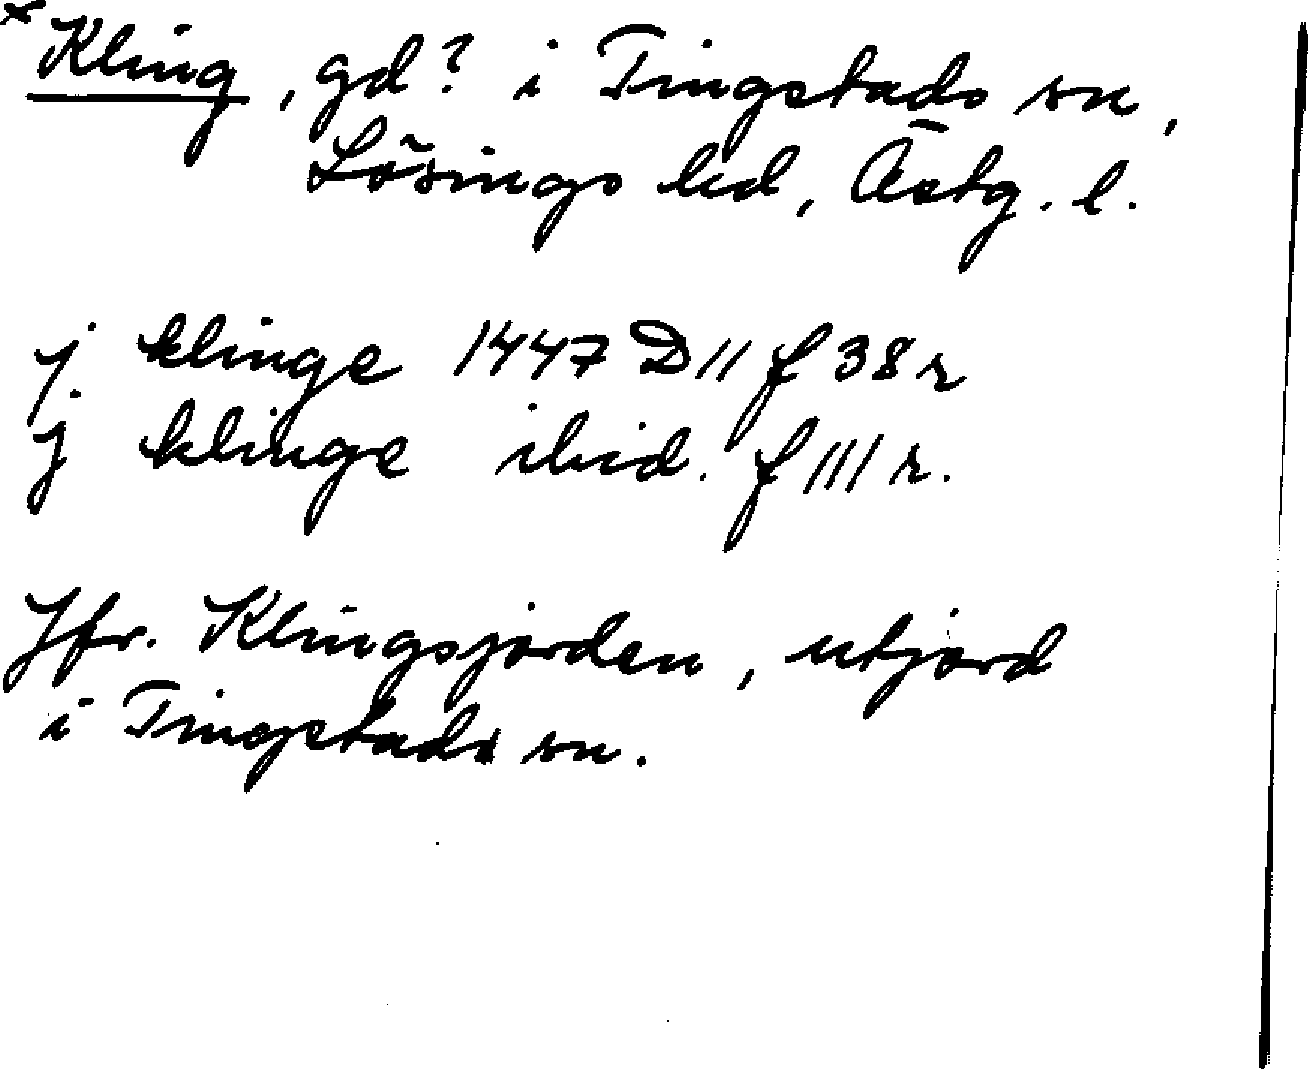 *Kling, gd? i Tingstads sn,
Lösings hd, Östg. l.
j klinge 1447 D11 f 38 r
j klinge ibid. f 111 r.
Jfr. Klingsjorden, utjord
i Tingstads sn.